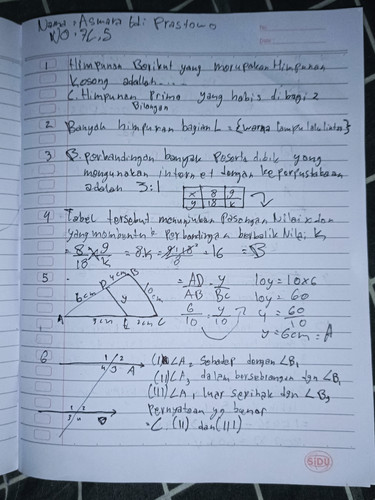 Nama : Asmara Edi Prastowo
NO : 7C.5
No:
Date:
1 Himpunan Berikut yang merupakan Himpunan
Kosong adallah....
C. Himpunan Prima yang habis dibagi 2
Bilangan
2 Banyak himpunan bagian L = {warna lampu lalulintas}
3 B. perbandingan banyak Peserta didik yang
mengunakan internet dengan keperpustakaan
adalah 3:1
x 8 9
y 18 k
4 Tabel tersebut menunjukan Pasangan Nilai x dan
yang membentuk Perbandingan berbalik Nilai K
= 8/18 × 9/k = 8k = 9·18/8 = 16 = B
5 A 6cm D 4cm B 10cm y E C
= AD/AB = y/BC
6/10 = y/10
10y = 10×6
10y = 60
y = 60/10
y = 6cm = A
6 1 2 4 3 A
(I) ∠A, sehadap dengan ∠B1
(II) ∠A3 dalam bersebrangan dgn ∠B1
(III) ∠A, luar serihak dgn ∠B2
Pernyataan yg benar
= C. (II) dan (III)
B
SIDU